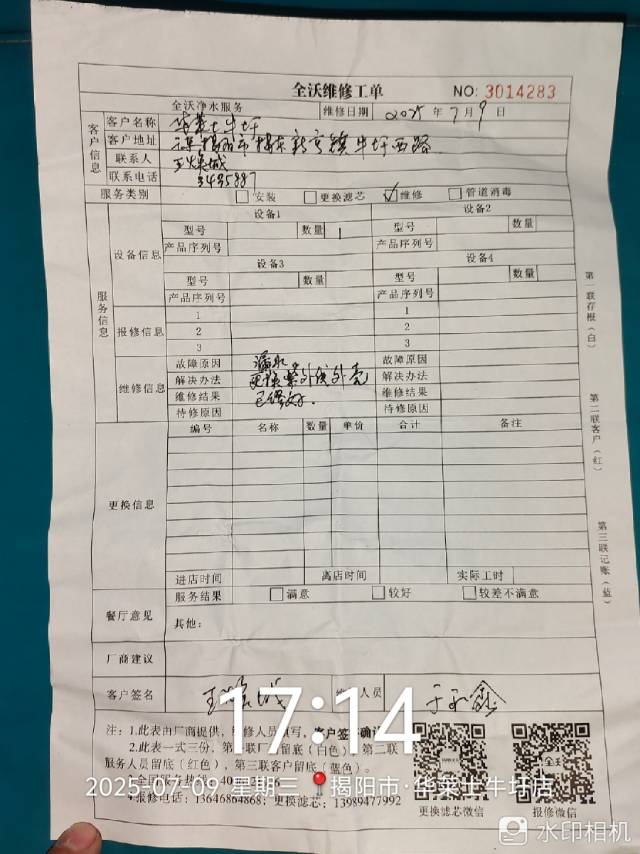 全沃维修工单
NO: 3014283
全沃净水服务 维修日期 2025 年 7 月 9 日
客户信息
客户名称 华莱士牛圩
客户地址 揭阳市揭东新亨镇牛圩西路
联系人 王焕城
联系电话
服务类别 安装 更换滤芯 ✓维修 管道消毒
服务信息
设备信息
设备1 设备2
型号 数量 1 型号 数量
产品序列号 产品序列号
设备3 设备4
型号 数量 型号 数量
产品序列号 产品序列号
报修信息
1 1
2 2
3 3
维修信息
故障原因 漏水 故障原因
解决办法 更换紫外线外壳 解决办法
维修结果 已修好. 维修结果
待修原因 待修原因
更换信息
编号 名称 数量 单价 合计 备注
进店时间 离店时间 实际工时
餐厅意见
服务结果 满意 较好 较差不满意
其他:
厂商建议
客户签名 王焕城 人员
注: 1.此表由厂商提供, 维修人员填写, 客户签
2.此表一式三份, 第一联厂 留底(白色), 第二联
服务人员留底(红色), 第三联客户留底(蓝色)。
4.报修电话: 13646864868; 更换滤芯: 13989477992
更换滤芯微信 报修微信
全沃
第一联存根(白)
第二联客户(红)
第三联记账(蓝)
17:14
2025-07-09 星期三 揭阳市·华莱士牛圩店
水印相机